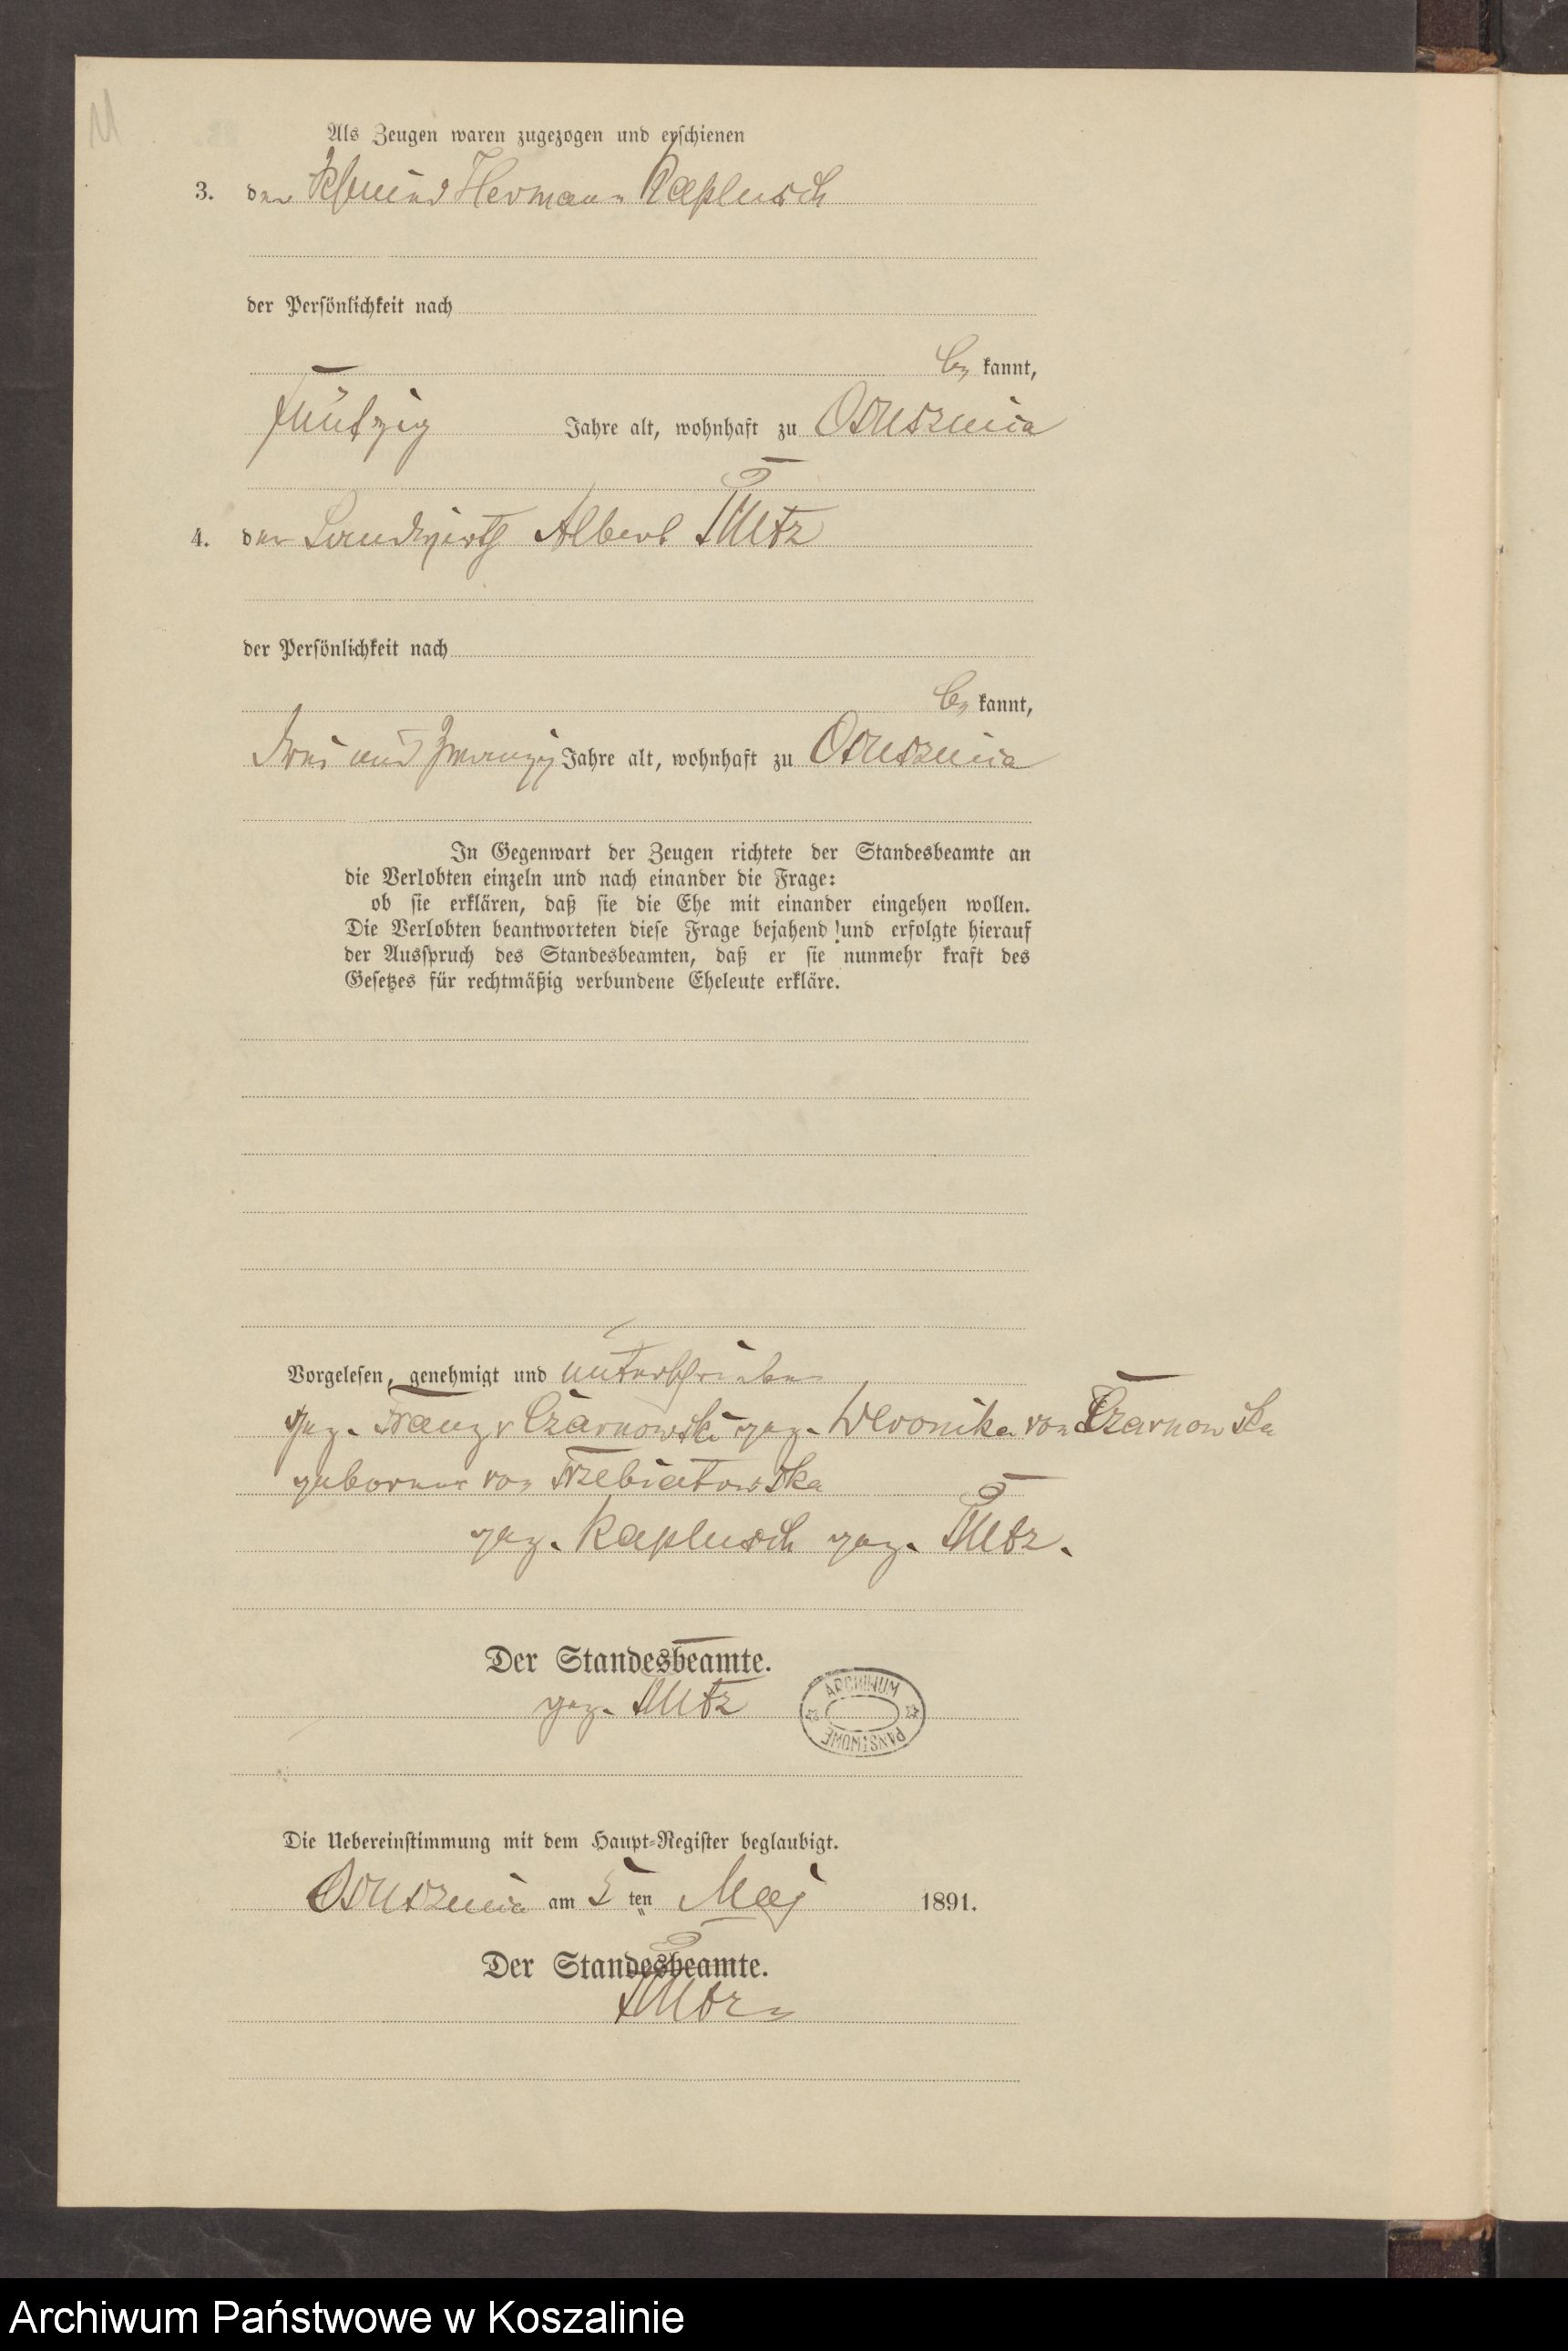 Als Zeugen waren zugezogen und erschienen
3. der Hermann Kaplusch
der Persönlichkeit nach
be kannt,
fünfzig Jahre alt, wohnhaft zu Osusznica
4. der Landwirth Albert
der Persönlichkeit nach
be kannt,
drei und zwanzig Jahre alt, wohnhaft zu Osusznica
In Gegenwart der Zeugen richtete der Standesbeamte an
die Verlobten einzeln und nach einander die Frage:
ob sie erklären, daß sie die Ehe mit einander eingehen wollen.
Die Verlobten beantworteten diese Frage bejahend und erfolgte hierauf
der Ausspruch des Standesbeamten, daß er sie nunmehr kraft des
Gesetzes für rechtmäßig verbundene Eheleute erkläre.
Vorgelesen, genehmigt und unterschrieben
gez. Franz v Czarnowski gez. Weronika von Czarnowska
geborene von Trzebiatowska
gez. Kaplusch gez.
Der Standesbeamte.
gez.
ARCHIWUM PAŃSTWOWE
Die Uebereinstimmung mit dem Haupt-Register beglaubigt.
Osusznica am 5 ten Maj 1891.
Der Standesbeamte.
Archiwum Państwowe w Koszalinie